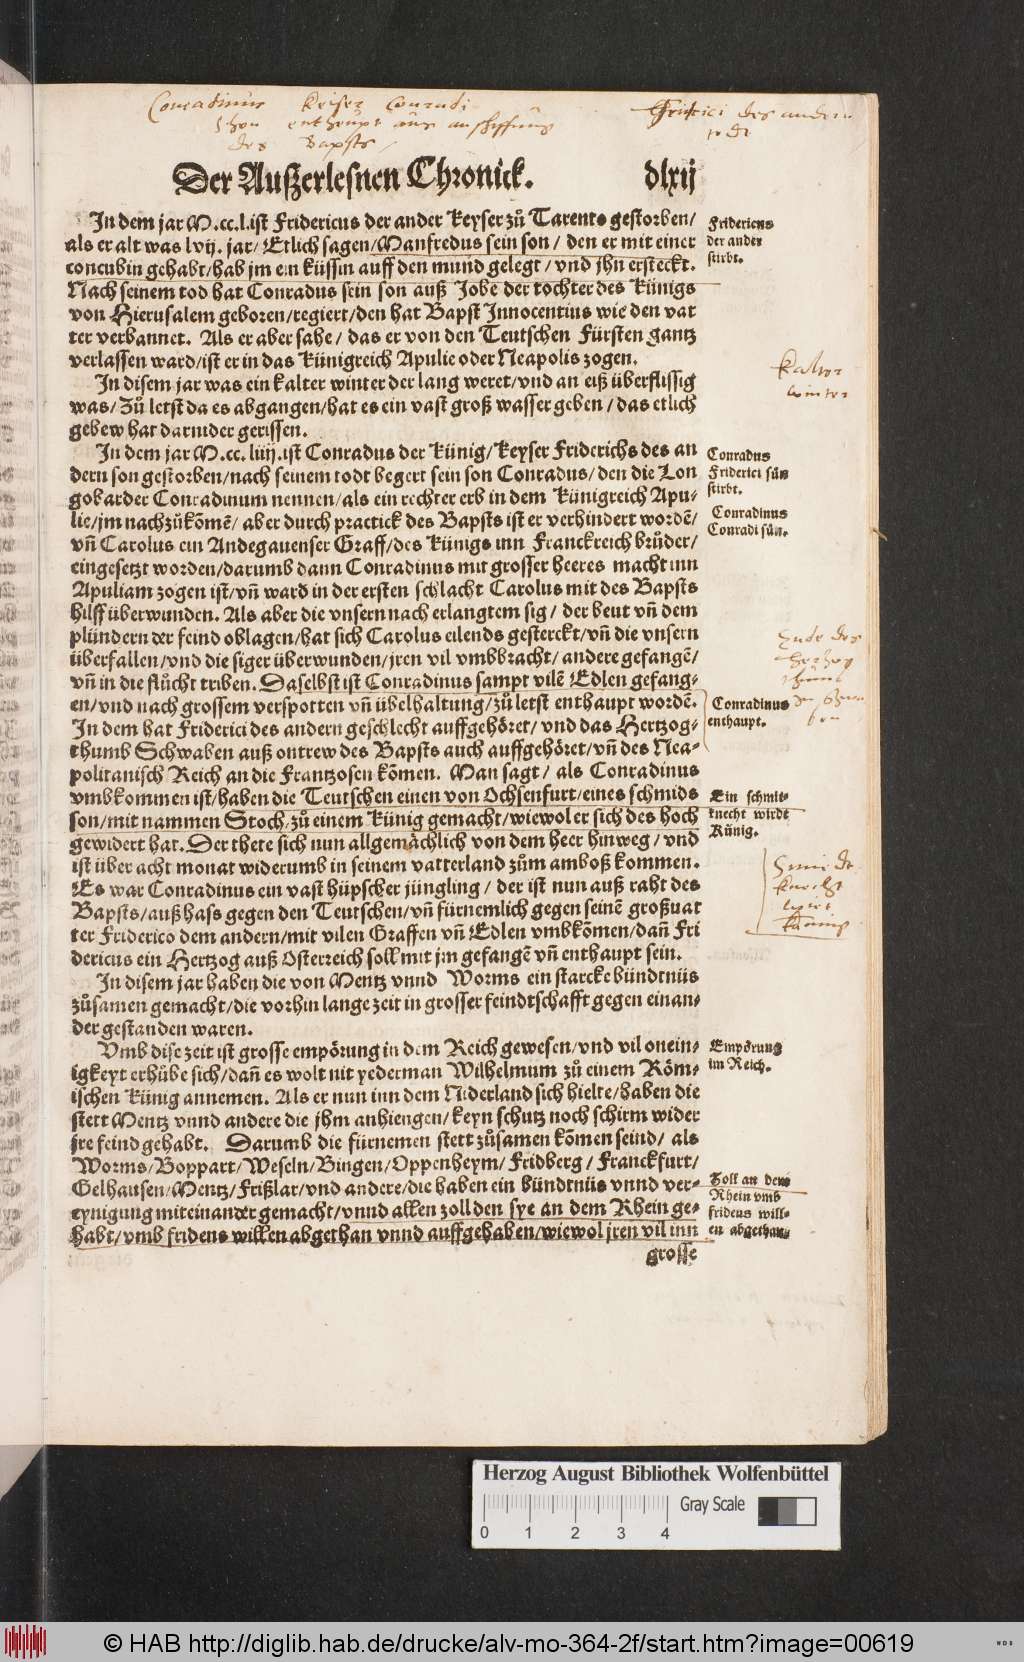 Conradinus Keiser Conradi
Shon enthaupt aus anstiffung
des Bapsts
Friderici des andern
todt
Der Außerlesnen Chronick. dlxij
In dem jar M.cc.l.ist Fridericus der ander Keyser zů Tarento gestorben/
als er alt was lvij. jar/Etlich sagen/Manfredus sein son/ den er mit einer
concubin gehabt/hab jm ein küssin auff den mund gelegt/vnd jhn ersteckt.
Nach seinem tod hat Conradus sein son auß Jobe der tochter des Künigs
von Hierusalem geboren/regiert/den hat Bapst Innocentius wie den vat
ter verbannet. Als er aber sahe/ das er von den Teutschen Fürsten gantz
verlassen ward/ist er in das Künigreich Apulie oder Neapolis zogen.
In disem jar was ein kalter winter der lang weret/vnd an eiß überflissig
was/Zů letst da es abgangen/hat es ein vast groß wasser geben/das etlich
gebew hat darnider gerissen.
In dem jar M.cc. liiij.ist Conradus der Künig/Keyser Friderichs des an
dern son gestorben/nach seinem todt begert sein son Conradus/den die Lon
gobarder Conradinum nennen/als ein rechter erb in dem Künigreich Apu-
lie/jm nachzůkõmẽ/ aber durch practick des Bapsts ist er verhindert wordẽ/
vñ Carolus ein Andegauenser Graff/des Künigs inn Franckreich brůder/
eingesetzt worden/darumb dann Conradinus mit grosser heeres macht inn
Apuliam zogen ist/vñ ward in der ersten schlacht Carolus mit des Bapsts
hilff überwunden. Als aber die vnsern nach erlangtem sig/ der beut vñ dem
plündern der feind oblagen/hat sich Carolus eilends gesterckt/vñ die vnsern
überfallen/vnd die siger überwunden/jren vil vmbbracht/andere gefangẽ/
vñ in die flůcht triben. Daselbst ist Conradinus sampt vilẽ Edlen gefang-
en/vnd nach grossem verspotten vñ übelhaltung/zů letst enthaupt wordẽ.
In dem hat Friderici des andern geschlecht auffgehöret/vnd das Hertzog-
thumb Schwaben auß ontrew des Bapsts auch auffgehöret/vñ des Nea-
politanisch Reich an die Frantzosen kõmen. Man sagt/ als Conradinus
vmbkommen ist/haben die Teutschen einen von Ochsenfurt/eines schmids
son/mit nammen Stoch/zů einem Künig gemacht/wiewol er sich des hoch
gewidert hat. Der thete sich nun allgemächlich von dem heer hinweg/ vnd
ist über acht monat widerumb in seinem vatterland zům amboß kommen.
Es war Conradinus ein vast hüpscher jüngling/ der ist nun auß raht des
Bapsts/auß hass gegen den Teutschen/vñ fürnemlich gegen seinẽ großuat
ter Friderico dem andern/mit vilen Graffen vñ Edlen vmbkõmen/dañ Fri
dericus ein Hertzog auß Osterreich soll mit jm gefangẽ vñ enthaupt sein.
In disem jar haben die von Mentz vnnd Worms ein starcke bündtnüs
zůsamen gemacht/die vorhin lange zeit in grosser feindtschafft gegen einan-
der gestanden waren.
Vmb dise zeit ist grosse empörung in dem Reich gewesen/vnd vil onein-
igkeyt erhůbe sich/dañ es wolt nit yederman Wilhelmum zů einem Röm-
ischen Künig annemen. Als er nun inn dem Niderland sich hielte/haben die
stett Mentz vnnd andere die jhm anhiengen/keyn schutz noch schirm wider
jre feind gehabt. Darumb die fürnemen stett zůsamen kõmen seind/ als
Worms/Boppart/Weseln/Bingen/Oppenheym/Fridberg/Franckfurt/
Gelhausen/Mentz/Frißlar/vnd andere/die haben ein bündtnüs vnnd ver-
eynigung miteinander gemacht/vnnd allen zoll den sye an dem Rhein ge-
habt/vmb fridens willen abgethan vnnd auffgehaben/wiewol jren vil inn
grosse
Fridericus
der ander
stirbt.
Kalter
winter
Conradus
Friderici sůn
stirbt.
Conradinus
Conradi sůn.
Ende des
Conradinus
enthaupt.
Ein schmit-
knecht wirdt
Künig.
knecht
wirt
Künig
Empörung
im Reich.
Zoll an dem
Rhein vmb
fridens will-
en abgethan.
Herzog August Bibliothek Wolfenbüttel
Gray Scale
0 1 2 3 4
© HAB http://diglib.hab.de/drucke/alv-mo-364-2f/start.htm?image=00619